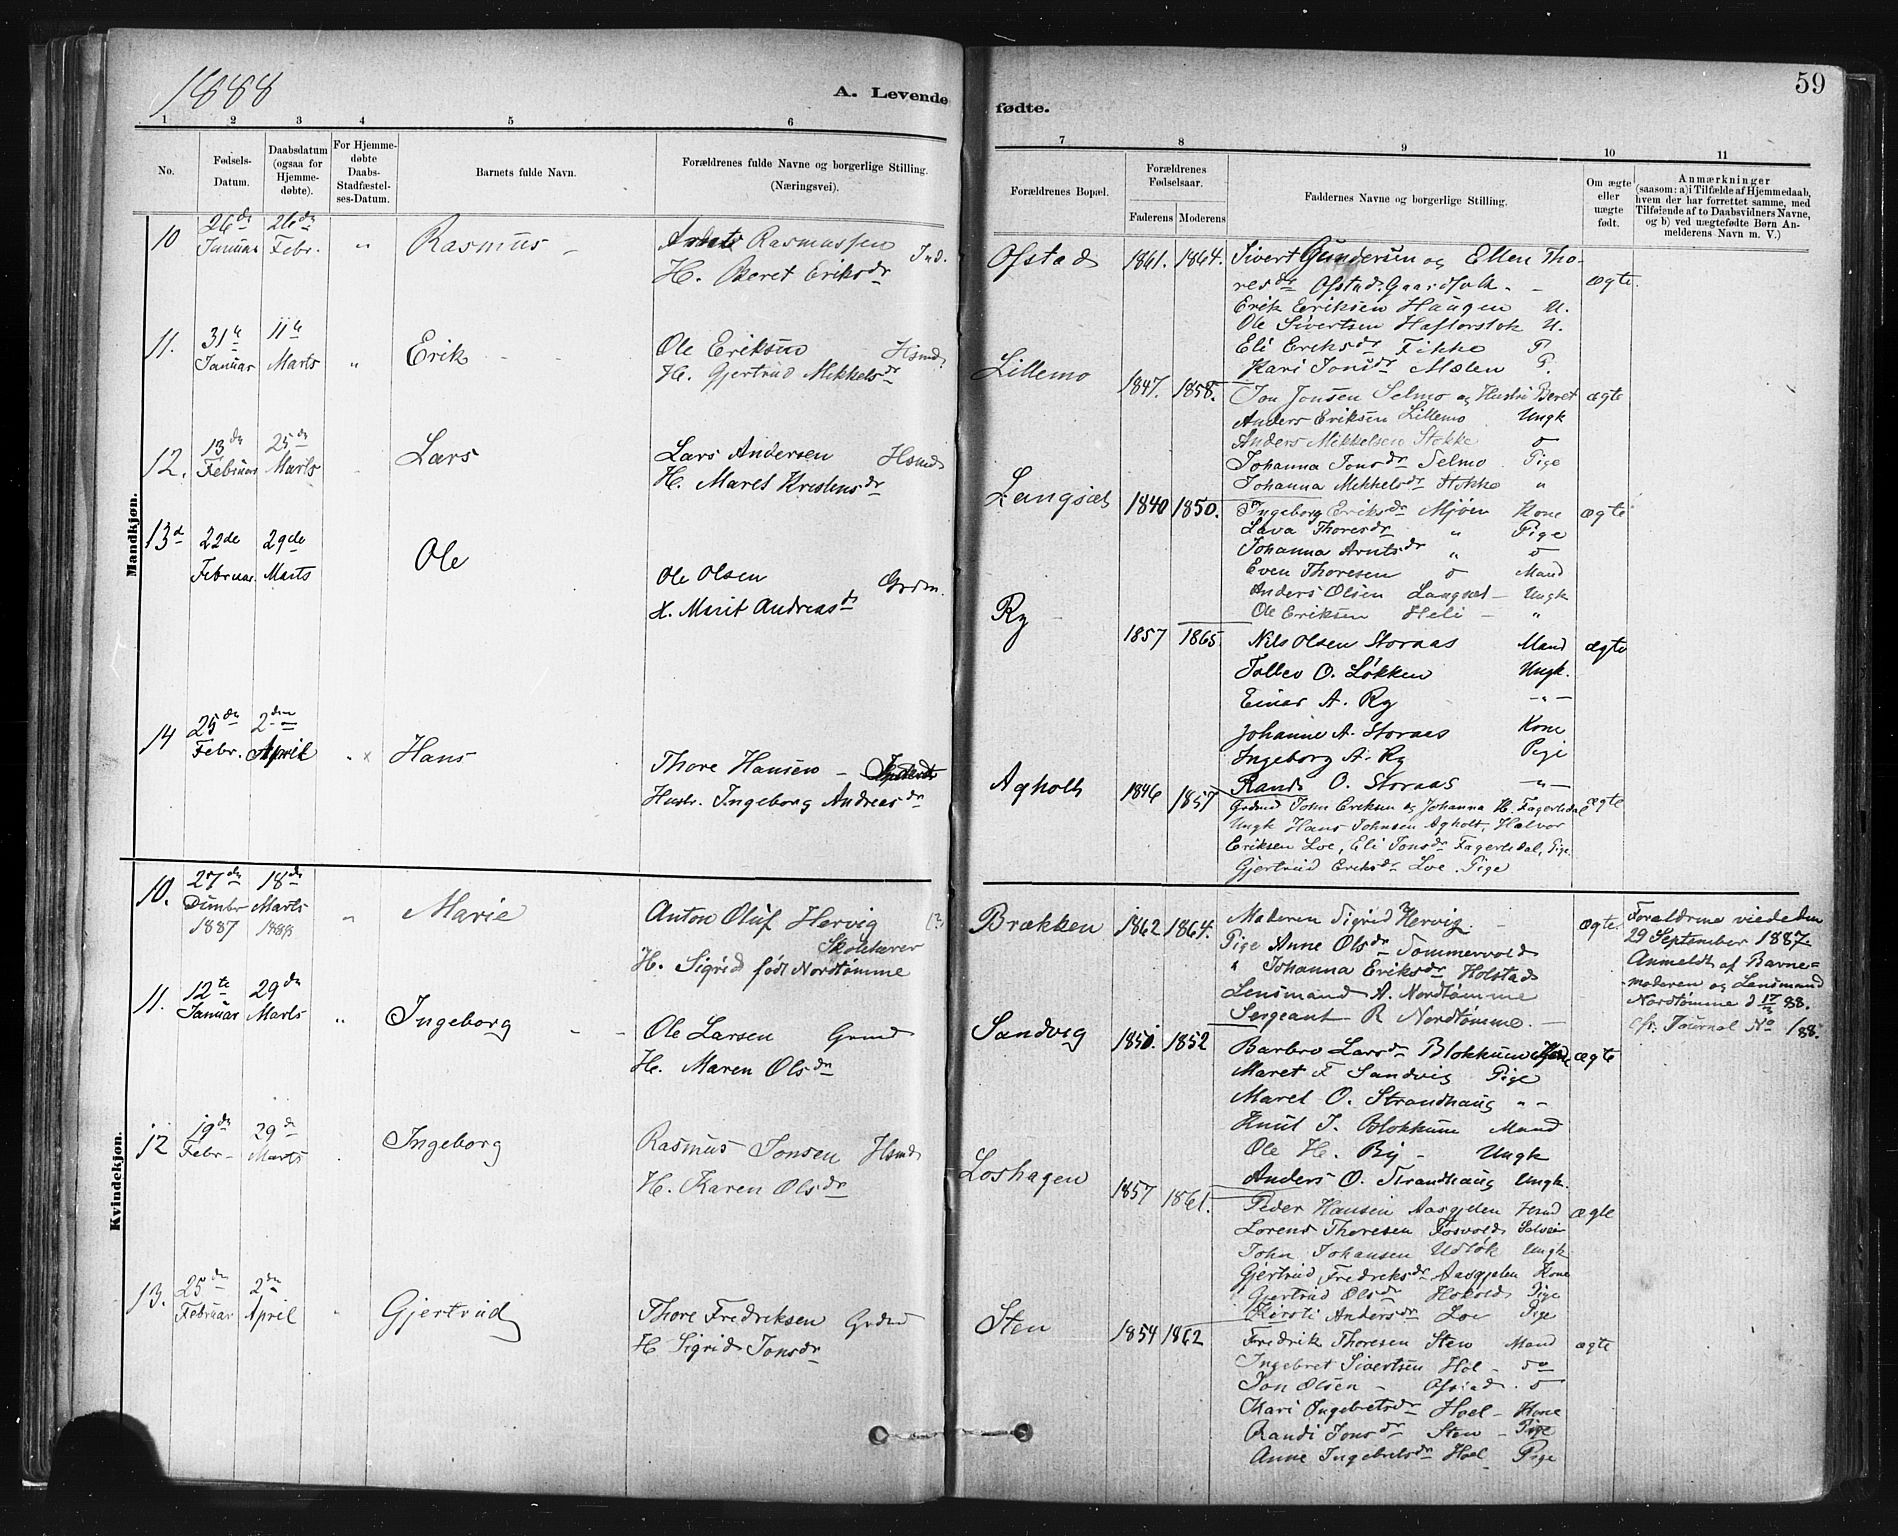 1888
A. Levende
fødte.
59
1 2 3 4 5 6 7 8 9 10 11
No.
Fødsels-Datum.
Daabsdatum (ogsaa for Hjemme-døbte).
For Hjemme-døbte Daabs-Stadfæstel-ses-Datum.
Barnets fulde Navn.
Forældrenes fulde Navne og borgerlige Stilling. (Næringsvei).
Forældrenes Bopæl.
Forældrenes Fødselsaar.
Faderens Moderens
Faddernes Navne og borgerlige Stilling.
Om ægte eller uægte født.
Anmærkninger
(saasom: a) i Tilfælde af Hjemmedaab,
hvem der har forrettet samme, med
Tilføiende af to Daabsvidners Navne,
og b) ved uægtefødte Børn An-
melderens Navn m. V.)
Mandkjøn.
10 26de Januar 26de Febr. " Rasmus
Rasmussen Ind.
H. Beret Eriksdr
Ofstad 1861. 1864.
Sivert Gundersen og Ellen Tho-
resdr Ofstad. Gaardfolk ægte.
Erik Eriksen Haugen U.
Ole Sivertsen Haftorstok U.
Eli Eriksdr Fikke P
Kari Jonsdr Mælen P.
11. 31te Januar 11te Marts " Erik
Ole Eriksen Hsmd
H. Gjertrud Mikkelsdr
Lillemo 1847. 1858.
Jon Jonsen Selmo og Hustru Beret ægte
Anders Eriksen Lillemo Ungk
Anders Mikkelsen Stokke o
Johanna Jonsdr Selmo Pige
Johanna Mikkelsdr Stokke "
12. 13de Februar 25de Marts Lars
Lars Andersen Hsmd
H. Maret Kristensdr
Langsæt 1840 1850.
Ingeborg Eriksdr Mjøen Kone ægte
Lava Thoresdr " Pige
Johanna Arntsdr " o
Even Thoresen o Mand
Anders Olsen Langsæt Ungk
Ole Eriksen Heli "
13d 22de Februar 29de Marts Ole
Ole Olsen Grdm.
H. Marit Andreasdr
Ry 1857 1865.
Nils Olsen Storaas Mand ægte
Tollev O. Løkken Ungk.
Einar A. Ry -"-
Johanne A. Storaas Kone
Ingeborg A. Ry Pige
Randi O. Storaas -"-
14 25de Febr. 2den April " x Hans
Thore Hansen
Hustr. Ingeborg Andreasdr
Agholt 1846 1857
Grdmd John Eriksen og Johanna H. Fagerlidal ægte
Ungk Hans Johnsen Agholt, Halvor
Eriksen Loe, Eli Jonsdr Fagerlidal, Pige.
Gjertrud Eriksdr Loe. Pige
Kvindekjøn.
10. 27de Dcmbr 1887 18de Marts 1888 " Marie
Anton Oluf Hervig
Skolelærer
H. Sigrid født Nordtømme
Brækken 1862 1864.
Moderen Sigrid Hervig ægte
Pige Anne Olsdr Sommervold
" Johanna Eriksdr Holstad
Lensmand A. Nordtømme
Sergeant R Nordtømme.
Forældrene viede den
29 September 1887.
Anmeldt af Barne-
moderen og Lensmand
Nordtømme d 17/3 88.
cfr. Journal No 1/88.
11. 12te Januar 29de Marts " Ingeborg
Ole Larsen Grmd
H. Maren Olsdr
Sandvig 1850. 1852
Barbro Larsdr Blokkum Kone ægte
Maret F Sandvig Pige
Maret O. Strandhaug " -
Knut J. Blokkum Mand
Ole H. By - Ungk
Anders O. Strandhaug Ungk.
12 19de Febr- 29de Marts Ingeborg
Rasmus Jonsen Hsmd
H. Karen Olsdr
Loshagen 1857 1861.
Peder Hansen Aasgjelen Hsmd ægte
Lorens Thoresen Fosvold
John Johansen Udløk Ungk
Gjertrud Fredriksdr Aasgjelen Kone
Gjertrud Olsdr Hokold Pige
Kirsti Andersdr Loe Pige
13. 25de Februar 2den April " Gjertrud
Thore Fredriksen Grdmd
H Sigrid Jonsdr
Sten 1854 1862
Fredrik Thoresen Sten Mand ægte
Ingebret Sivertsen Hol - do
Jon Olsen - Ofstad. o
Mari Ingebretsdr Hoel - Kone
Randi Jonsdr Sten - Pige
Anne Ingebretsdr Hoel Pige